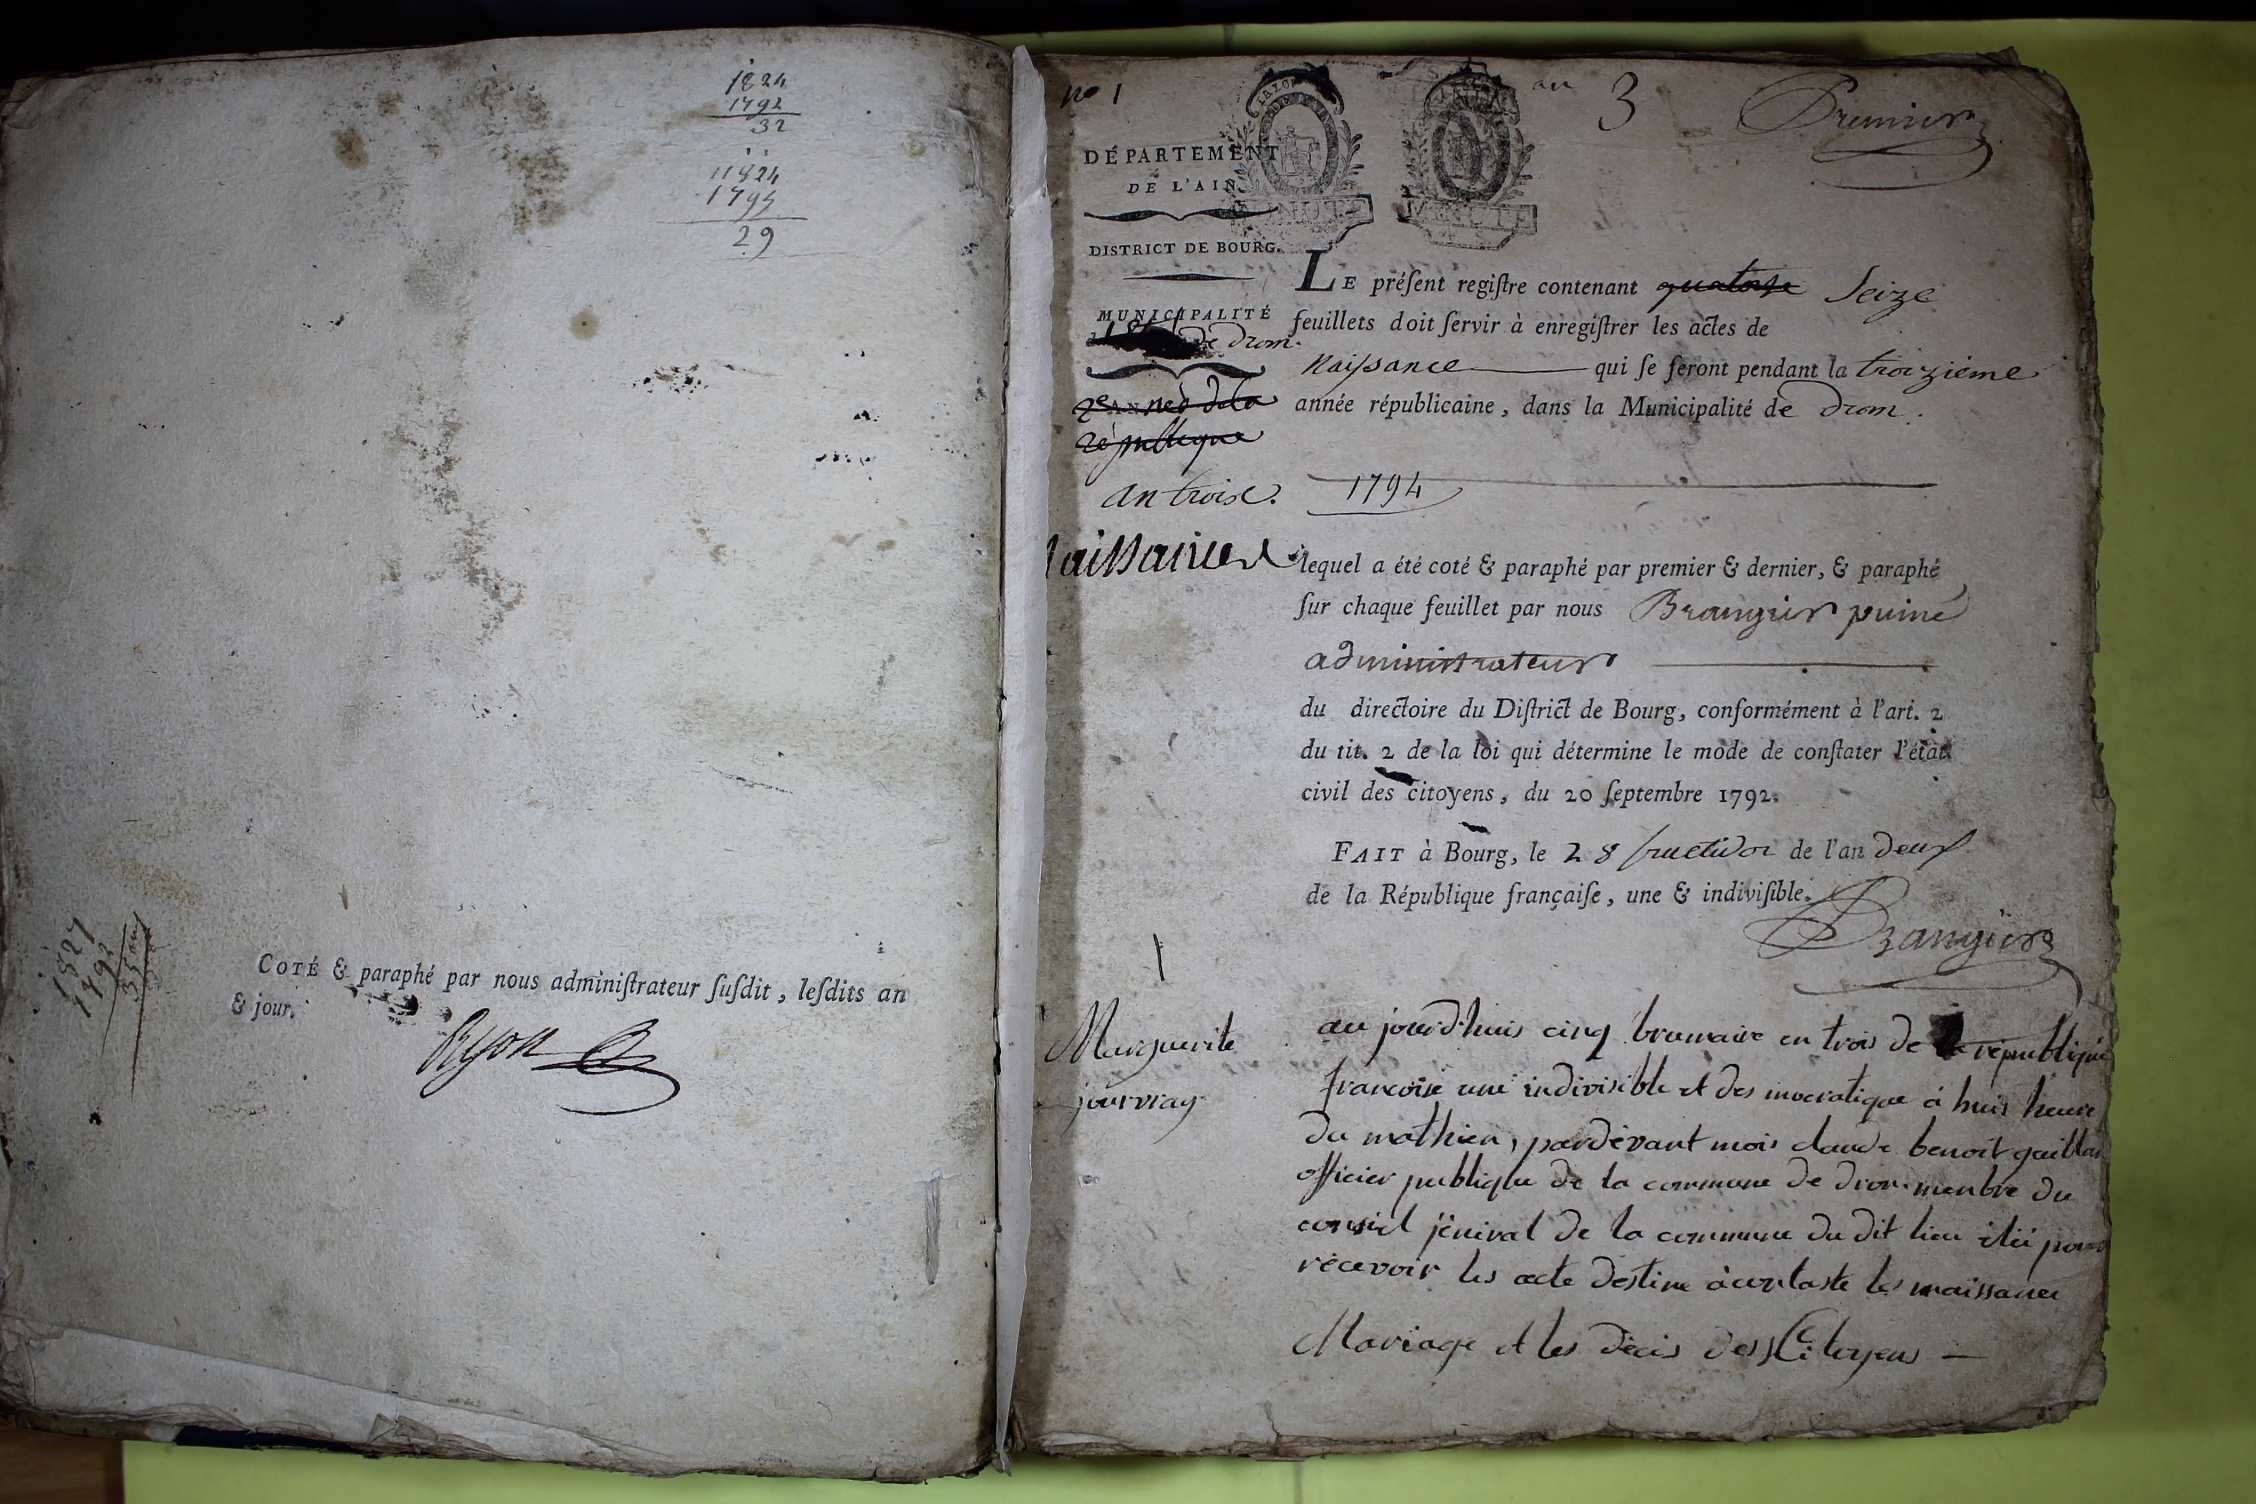 1824
1792
32
11824
1795
29
1827
1792
35 an
COTÉ & paraphé par nous adminiſtrateur ſuſdit, leſdits an
& jour.
no 1
an 3
Premier
DÉPARTEMENT
DE L'AIN
DISTRICT DE BOURG.
MUNICIPALITÉ
de drom.
2e ANNeé de la
républeque
an troise.
1794
Naissances
LE préſent regiſtre contenant quatorze Seize
feuillets doit ſervir à enregiſtrer les actes de
Naissance qui ſe feront pendant la troizieme
année républicaine, dans la Municipalité de Drom.
lequel a été coté & paraphé par premier & dernier, & paraphé
ſur chaque feuillet par nous Brangier puiné
administrateur
du directoire du Diſtrict de Bourg, conformément à l'art. 2
du tit. 2 de la loi qui détermine le mode de conſtater l'état
civil des citoyens, du 20 ſeptembre 1792.
FAIT à Bourg, le 28 fructidor de l'an deux
de la République françaiſe, une & indiviſible.
Brangier
1
Marguerite
jourvray
au jourd'huis cinq brumaire en trois de la republique
francoise une indivisible et des mocratique à huis heure
du mathien, pardevant mois claude benoit gaillar
officier publique de la commune de drom menbre du
conseil jéneral de la commune du dit lieu élié pour
récevoir les acte destine à contaste les naissance
Mariage et les décis des Citoyens —